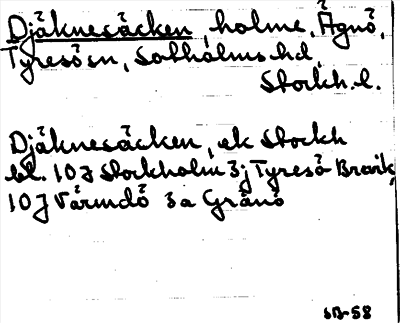 Djäknesäcken, holme, Ägnö,
Tyresö sn, Sotholms hd,
Stockh. l.
Djäknesäcken, ek Stockh
bl. 10 J Stockholm 3j Tyresö-Brevik,
10 J Värmdö 3a Grånö
SB-58